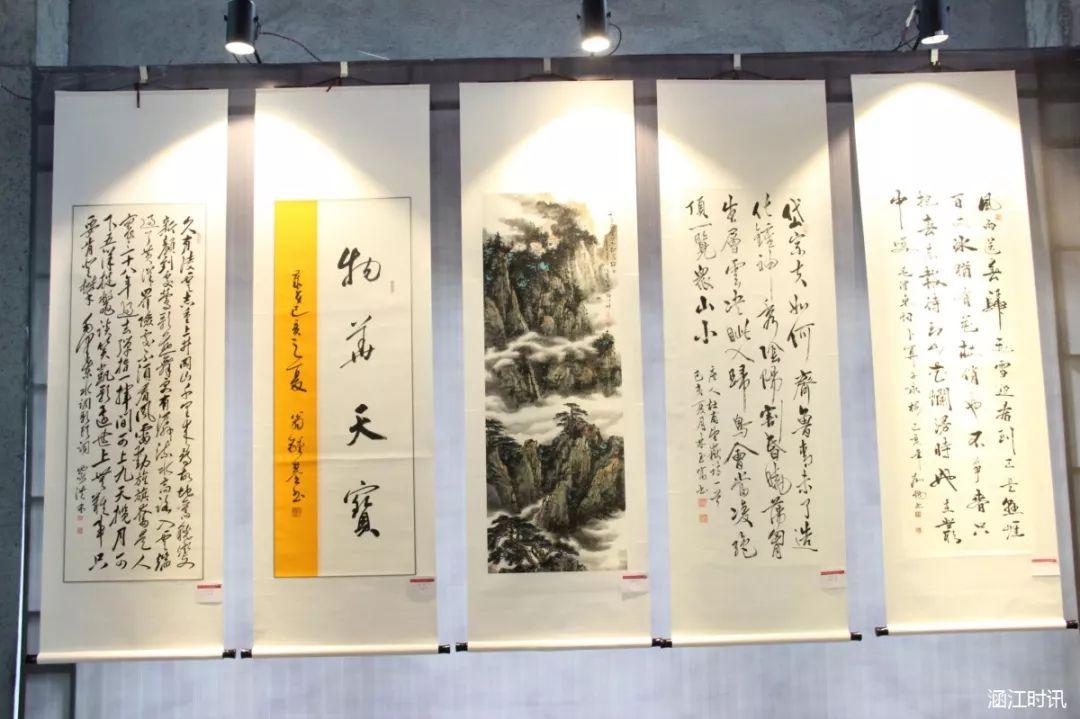 久有凌云志重上井冈山千里来寻故地旧貌变
新颜到处莺歌燕舞更有潺潺流水高路入云端
过了黄洋界险处不须看风雷动旌旗奋是人
寰三十八年过去弹指一挥间可上九天揽月可
下五洋捉鳖谈笑凯歌还世上无难事只
要肯登攀
物華天寶
歲在己亥之夏
岱宗夫如何齊魯青未了造
化鍾神秀陰陽割昏曉蕩胸
生層雲決眦入歸鳥會當凌絕
頂一覽眾山小
唐人杜甫望嶽詩一首
己亥夏月
風雨送春歸飛雪迎春到已是懸崖
百丈冰猶有花枝俏俏也不爭春只
把春來報待到山花爛漫時她在叢
中笑 毛澤東詞卜算子詠梅
涵江时讯